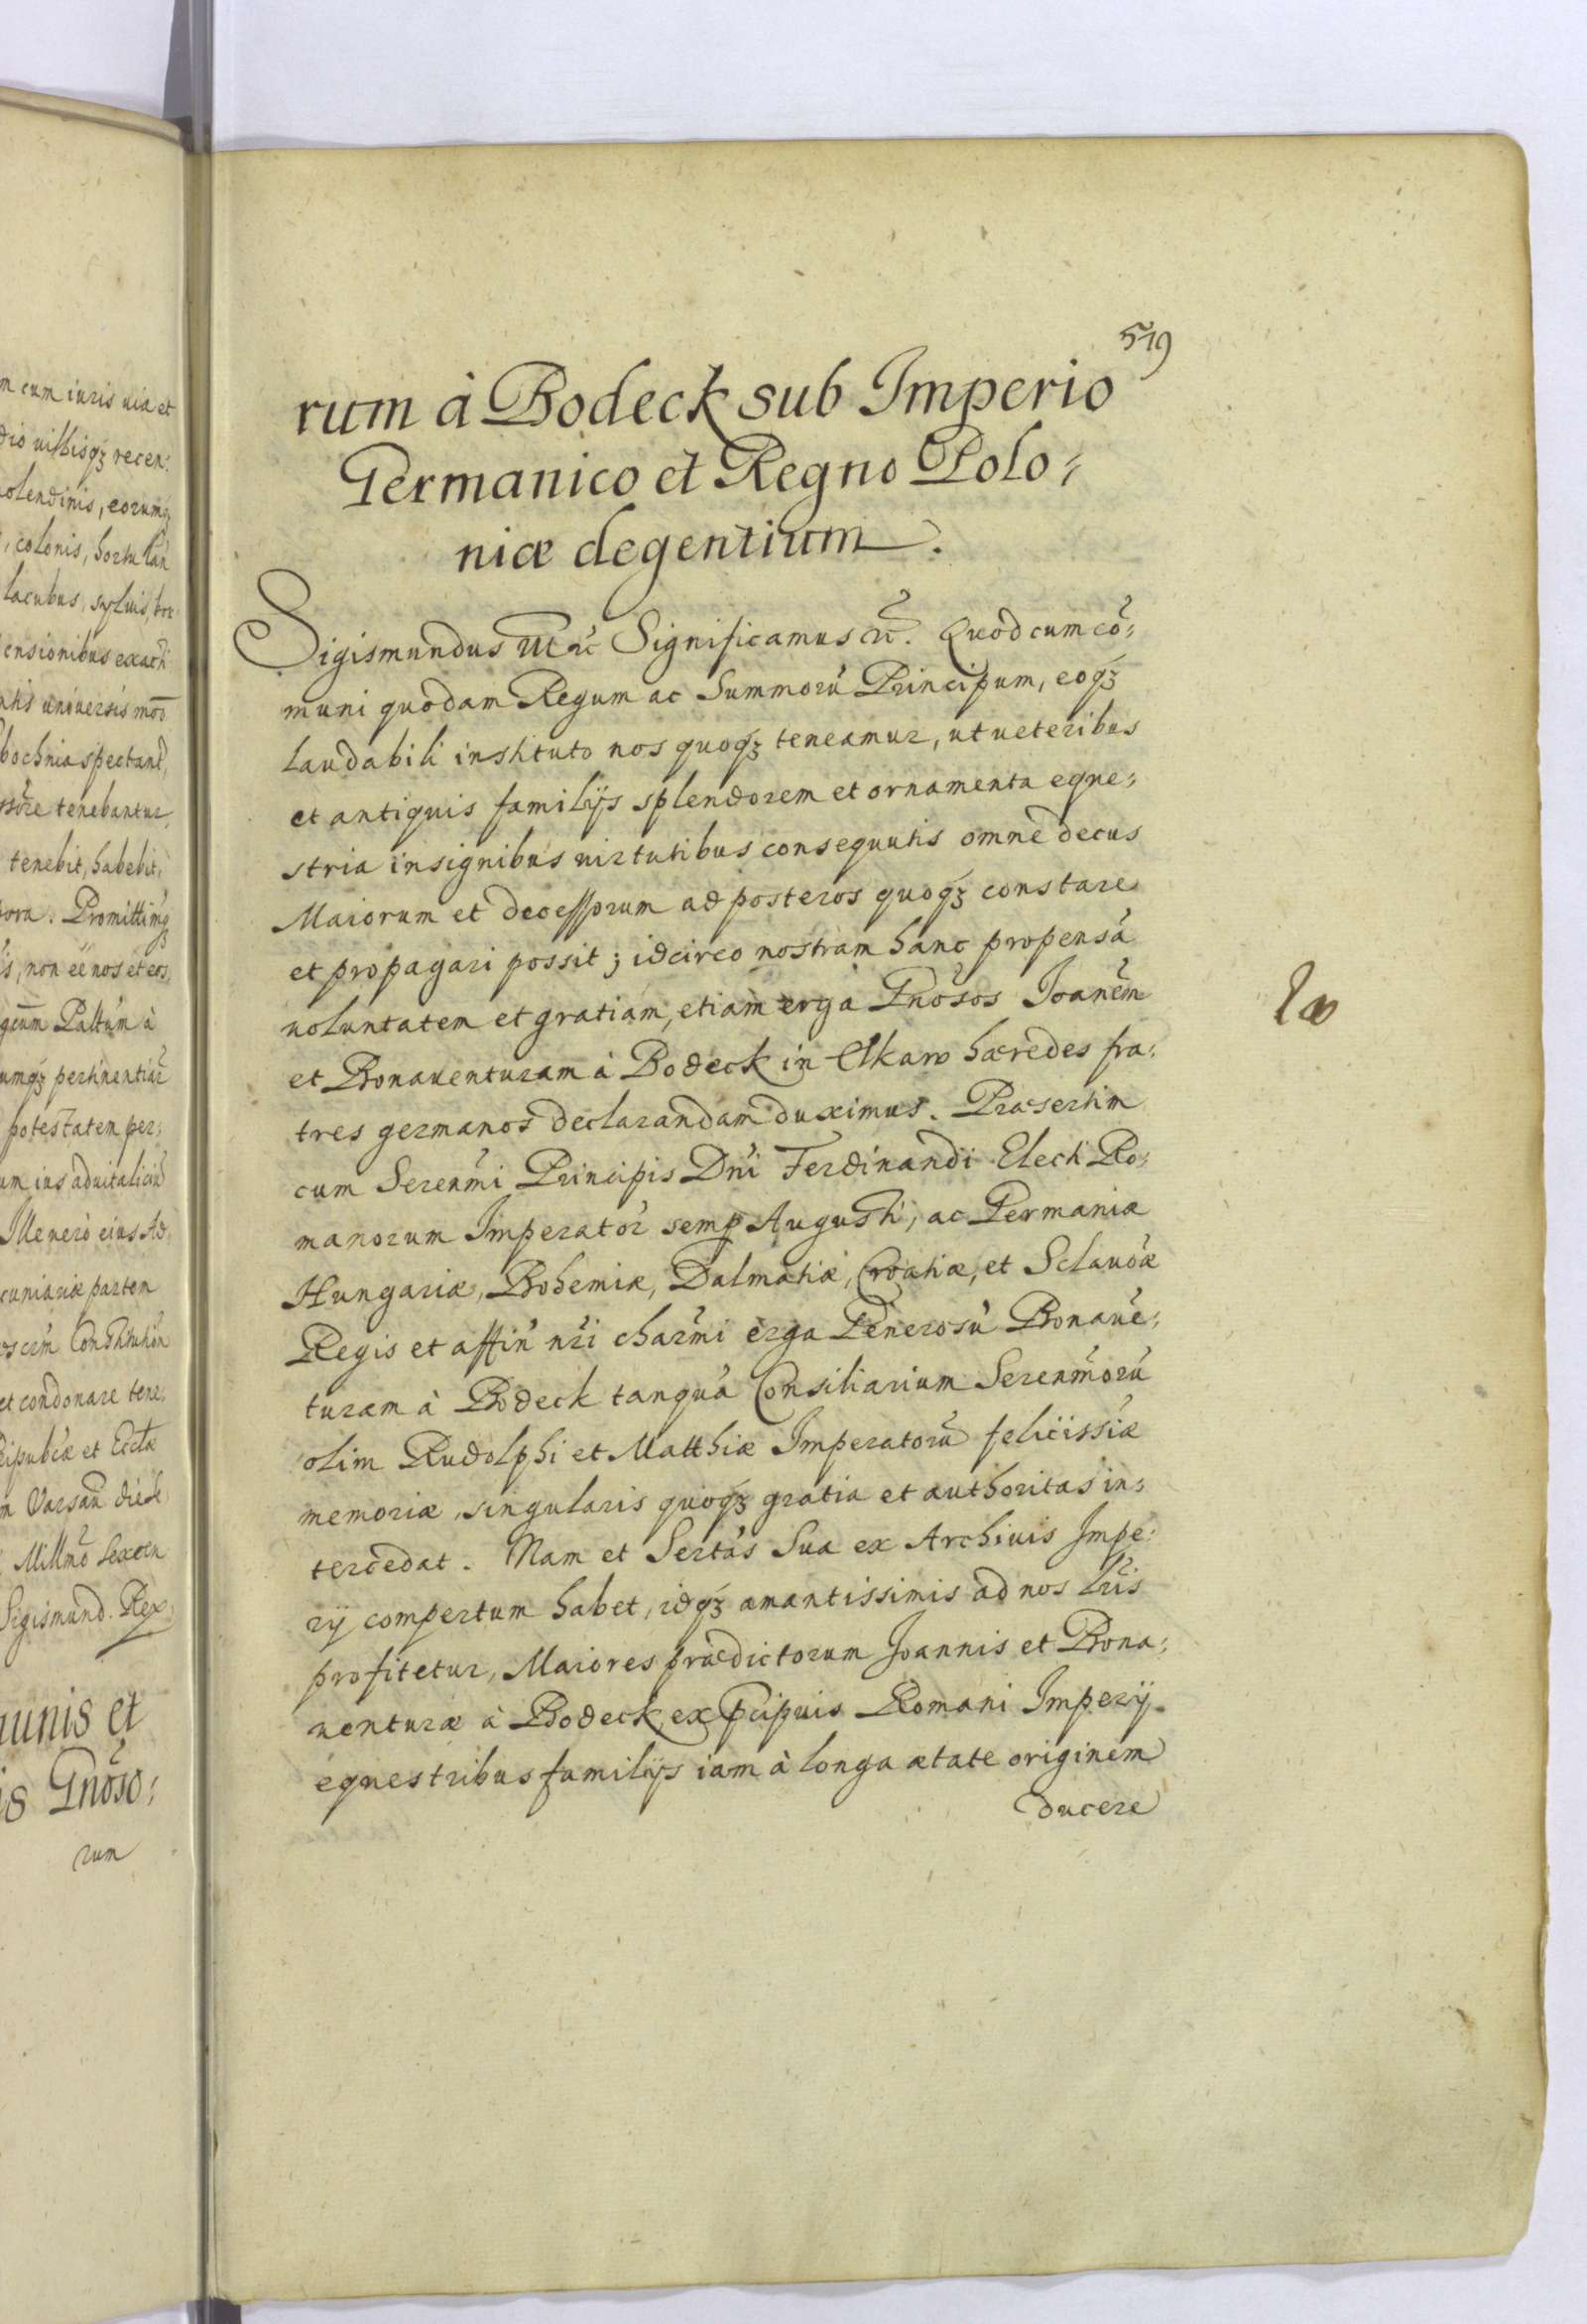 m cum iuris uia et
dio uillisqz recen:
olendinis, eorumqz
, colonis, hortulan
lacubus, syluis, bor
ensionibus exacti
ntis universis mod
bochnia spectand,
tenebantur,
tenebit, habebit,
pora. Promittimqz
s, non ee nos et eos,
Paltum à
umqz pertinentiar
potestatem per;
um ius aduitaliciu
Ille uero eius Ad
cuniariæ partem
Constitution
et condonare tene,
Reipublicæ et Ecclæ
m Varsau die
Millmo sexcen
Sigismund. Rex
munis et
is Gnoso;
rum
519
rum à Bodeck sub Imperio
Germanico et Regno Polo;
niæ degentium.
Sigismundus Ut rc Significamus rc. Quod cum cõ;
muni quodam Regum ac Summorũ Principum, eoqz
laudabili instituto nos quoqz teneamur, ut ueteribus
et antiquis familijs splendorem et ornamenta eque;
stria insignibus uirtutibus consequutis omne decus
Maiorum et decessorum ad posteros quoqz constare
et propagari possit; idcirco nostram hanc propensã
uoluntatem et gratiam, etiam erga Gnosos Joanẽm
et Bonauenturam à Bodeck in Elkaw hæredes fra;
tres germanos declarandam duximus. Præsertim
cum Serenmi Principis Dni Ferdinandi Electi Ro;
manorum Imperator semp Augusti, ac Germaniæ
Hungariæ, Bohemiæ, Dalmatiæ, Croatiæ, et Sclauoæ
Regis et affin nri charmi erga Generosũ Bonaue;
turam à Bodeck tanquã Consiliarium Serenmorũ
olim Rudolphi et Matthiæ Imperatorũ feliciissiæ
memoriæ, singularis quoqz gratia et authoritas in;
tercedat. Nam et Sertas Sua ex Archiuis Impe;
rij compertum habet, idqz amantissimis ad nos lris
profitetur, Maiores prædictorum Joannis et Bona;
uenturæ à Bodeck, ex pcipuis Romani Imperij
equestribus familijs iam à longa ætate originem
ducere